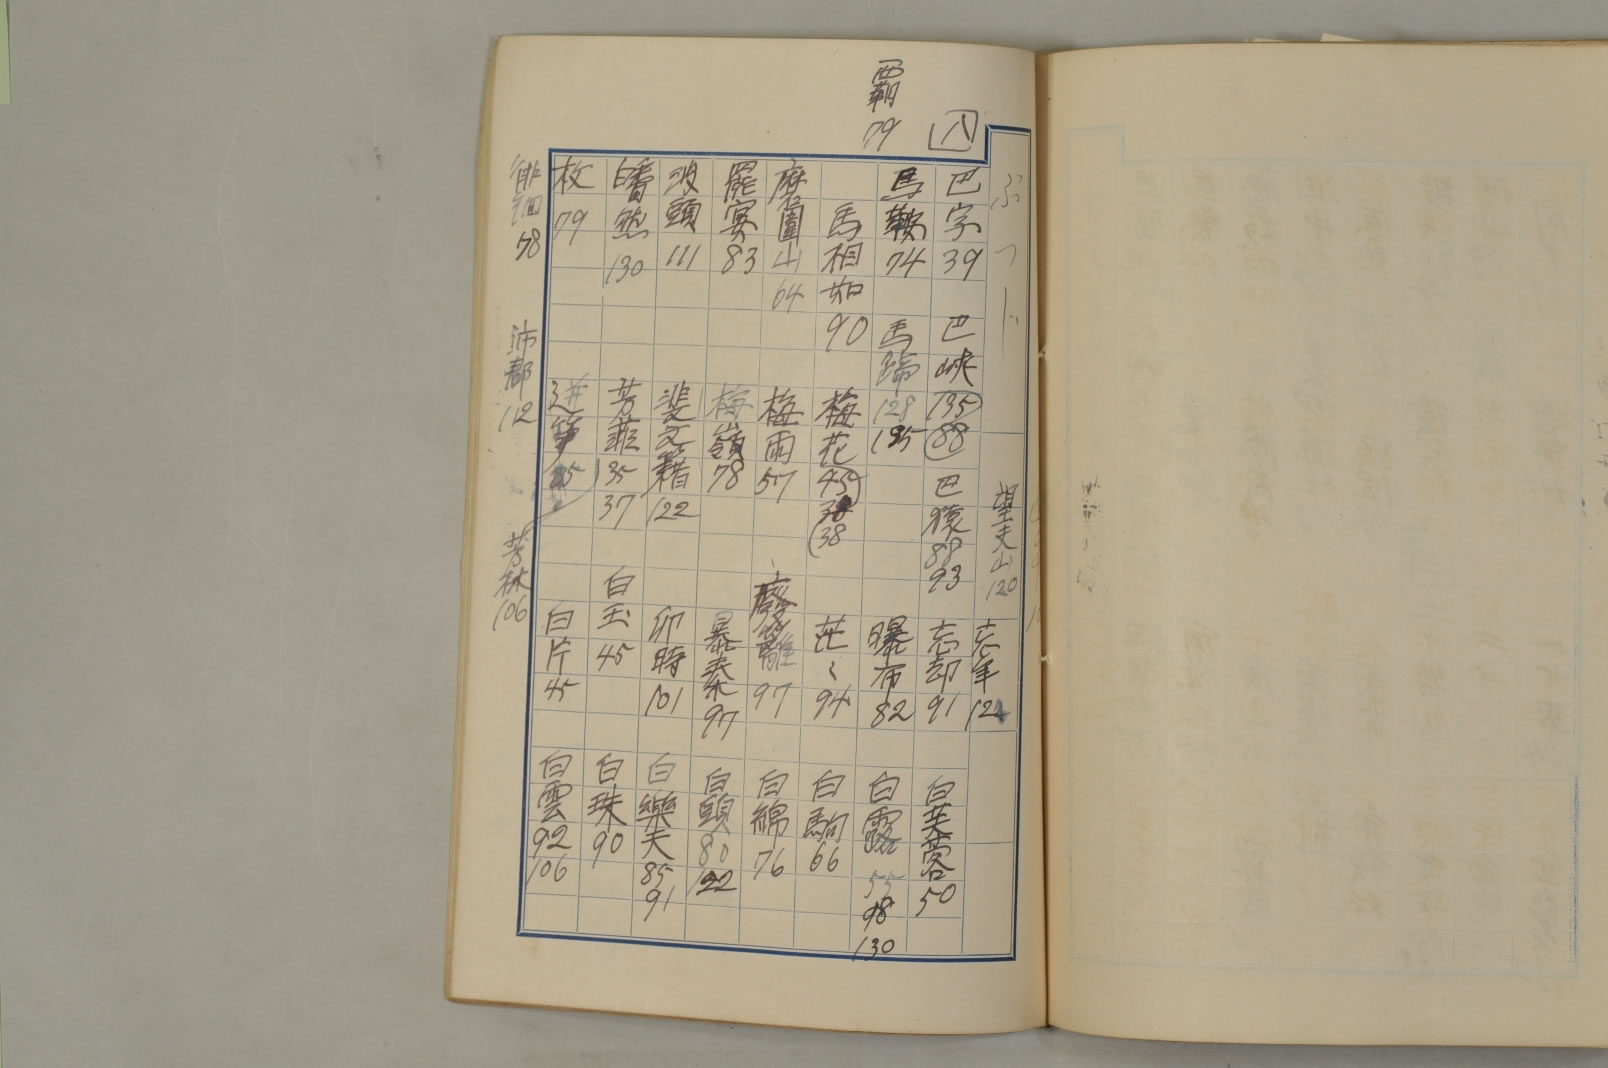 覇 79
八
巴字 39
巴峡 135 88
巴猿 88 93
望夫山 120
忘年 122
忘却 91
白芙蓉 50
馬鞍 74
馬蹄 128 135
曝布 82
白露 55 98 130
馬相如 90
梅花 45 38 38
茫〻 94
白駒 66
磨圍山 64
梅雨 57
癈離 97
白綿 76
罷宴 83
梅嶺 78
暴秦 97
白頭 80 122
波頭 111
裴文籍 122
卯時 101
白樂天 85 91
皤然 130
芳菲 35 37
白玉 45
白珠 90
枚 79
迸笋 35
白片 45
白雲 92 106
俳徊 78
沛郡 112
芳林 106